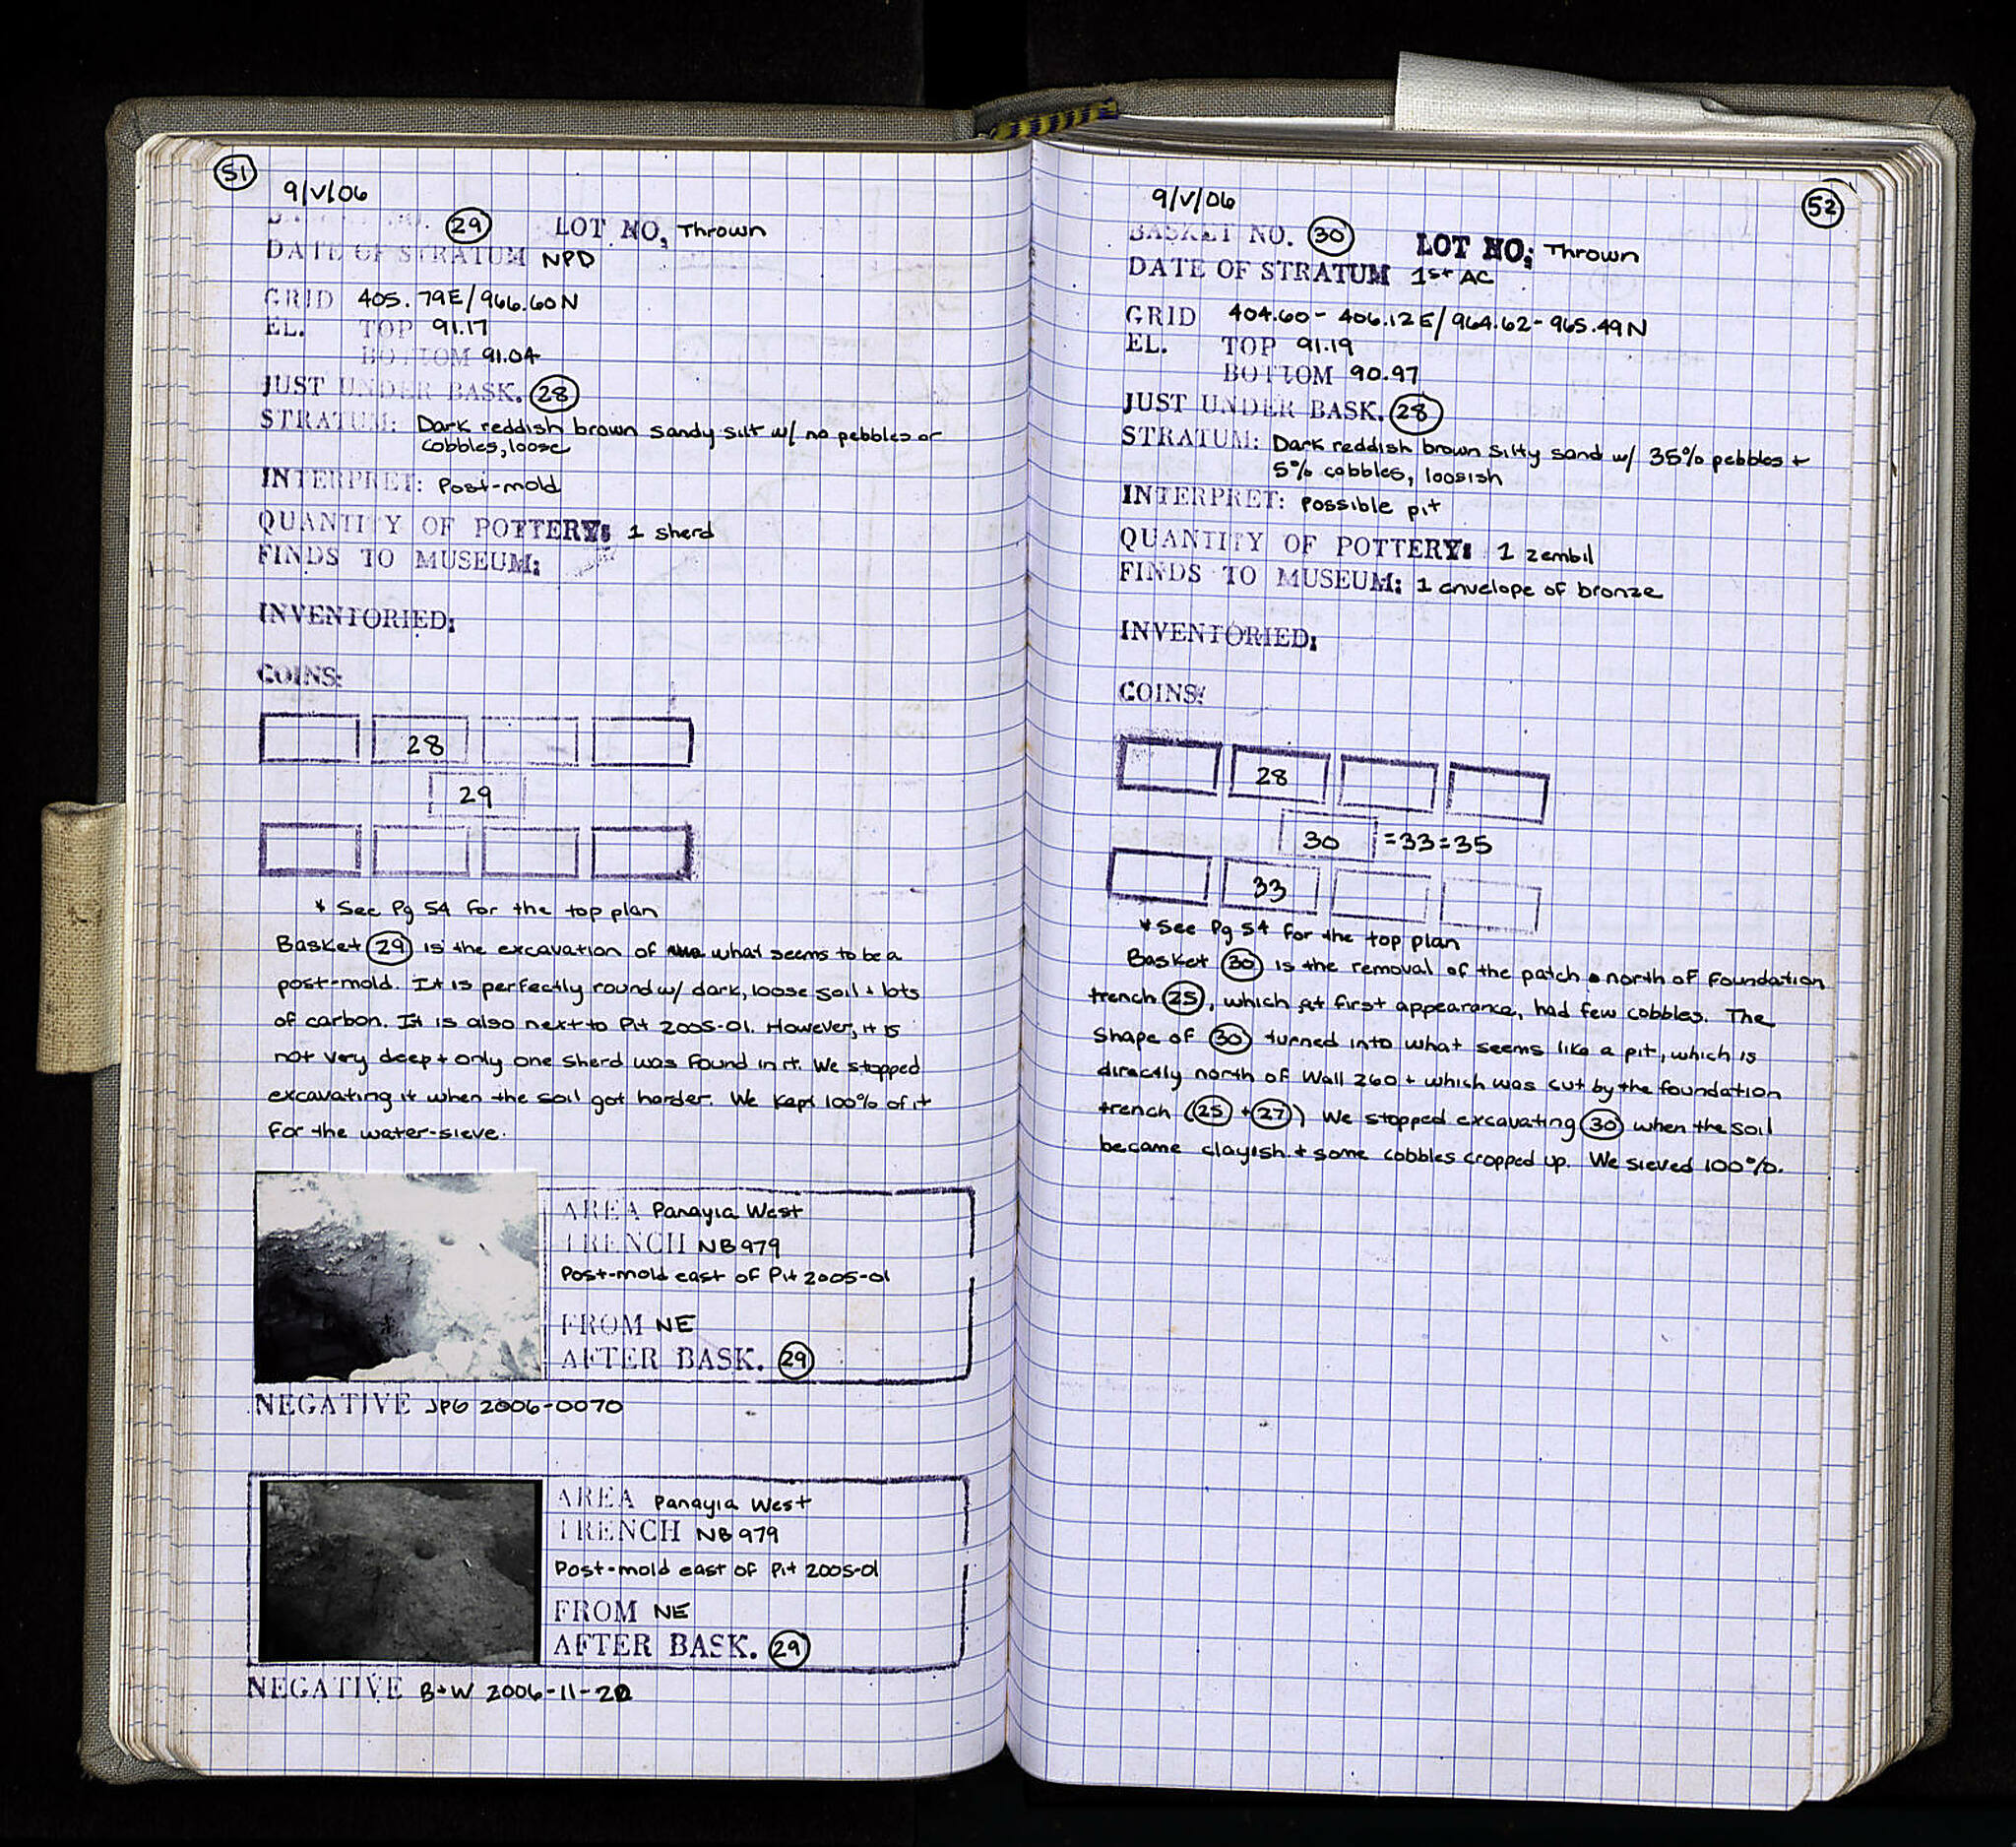 51
9/V/06
29 LOT NO, Thrown
DATE OF STRATUM NPD
GRID 405.79E/966.60N
EL. TOP 91.17
BOTTOM 91.04
JUST UNDER BASK. 28
STRATUM: Dark reddish brown sandy silt w/ no pebbles or
cobbles, loose
INTERPRET: Post-mold
QUANTITY OF POTTERY: 1 sherd
FINDS TO MUSEUM:
INVENTORIED:
COINS:
28
29
* See Pg 54 for the top plan
Basket 29 is the excavation of what seems to be a
post-mold. It is perfectly round w/ dark, loose soil + lots
of carbon. It is also next to Pit 2005-01. However, it is
not very deep + only one sherd was found in it. We stopped
excavating it when the soil got harder. We kept 100% of it
for the water-sieve.
AREA Panayia West
TRENCH NB979
Post-mold east of Pit 2005-01
FROM NE
AFTER BASK. 29
NEGATIVE JPG 2006-0070
AREA Panayia West
TRENCH NB979
Post-mold east of Pit 2005-01
FROM NE
AFTER BASK. 29
NEGATIVE B+W 2006-11-20
52
9/V/06
BASKET NO. 30 LOT NO: Thrown
DATE OF STRATUM 1st AC
GRID 404.60-406.12E/964.62-965.49N
EL. TOP 91.19
BOTTOM 90.97
JUST UNDER BASK. 28
STRATUM: Dark reddish brown silty sand w/ 35% pebbles +
5% cobbles, loosish
INTERPRET: Possible pit
QUANTITY OF POTTERY: 1 zembil
FINDS TO MUSEUM: 1 envelope of bronze
INVENTORIED:
COINS:
28
30 =33=35
33
* See Pg 54 for the top plan
Basket 30 is the removal of the patch north of Foundation
trench 25, which at first appearance, had few cobbles. The
shape of 30 turned into what seems like a pit, which is
directly north of Wall 260 + which was cut by the foundation
trench (25 + 27) We stopped excavating 30 when the soil
became clayish + some cobbles cropped up. We sieved 100%.